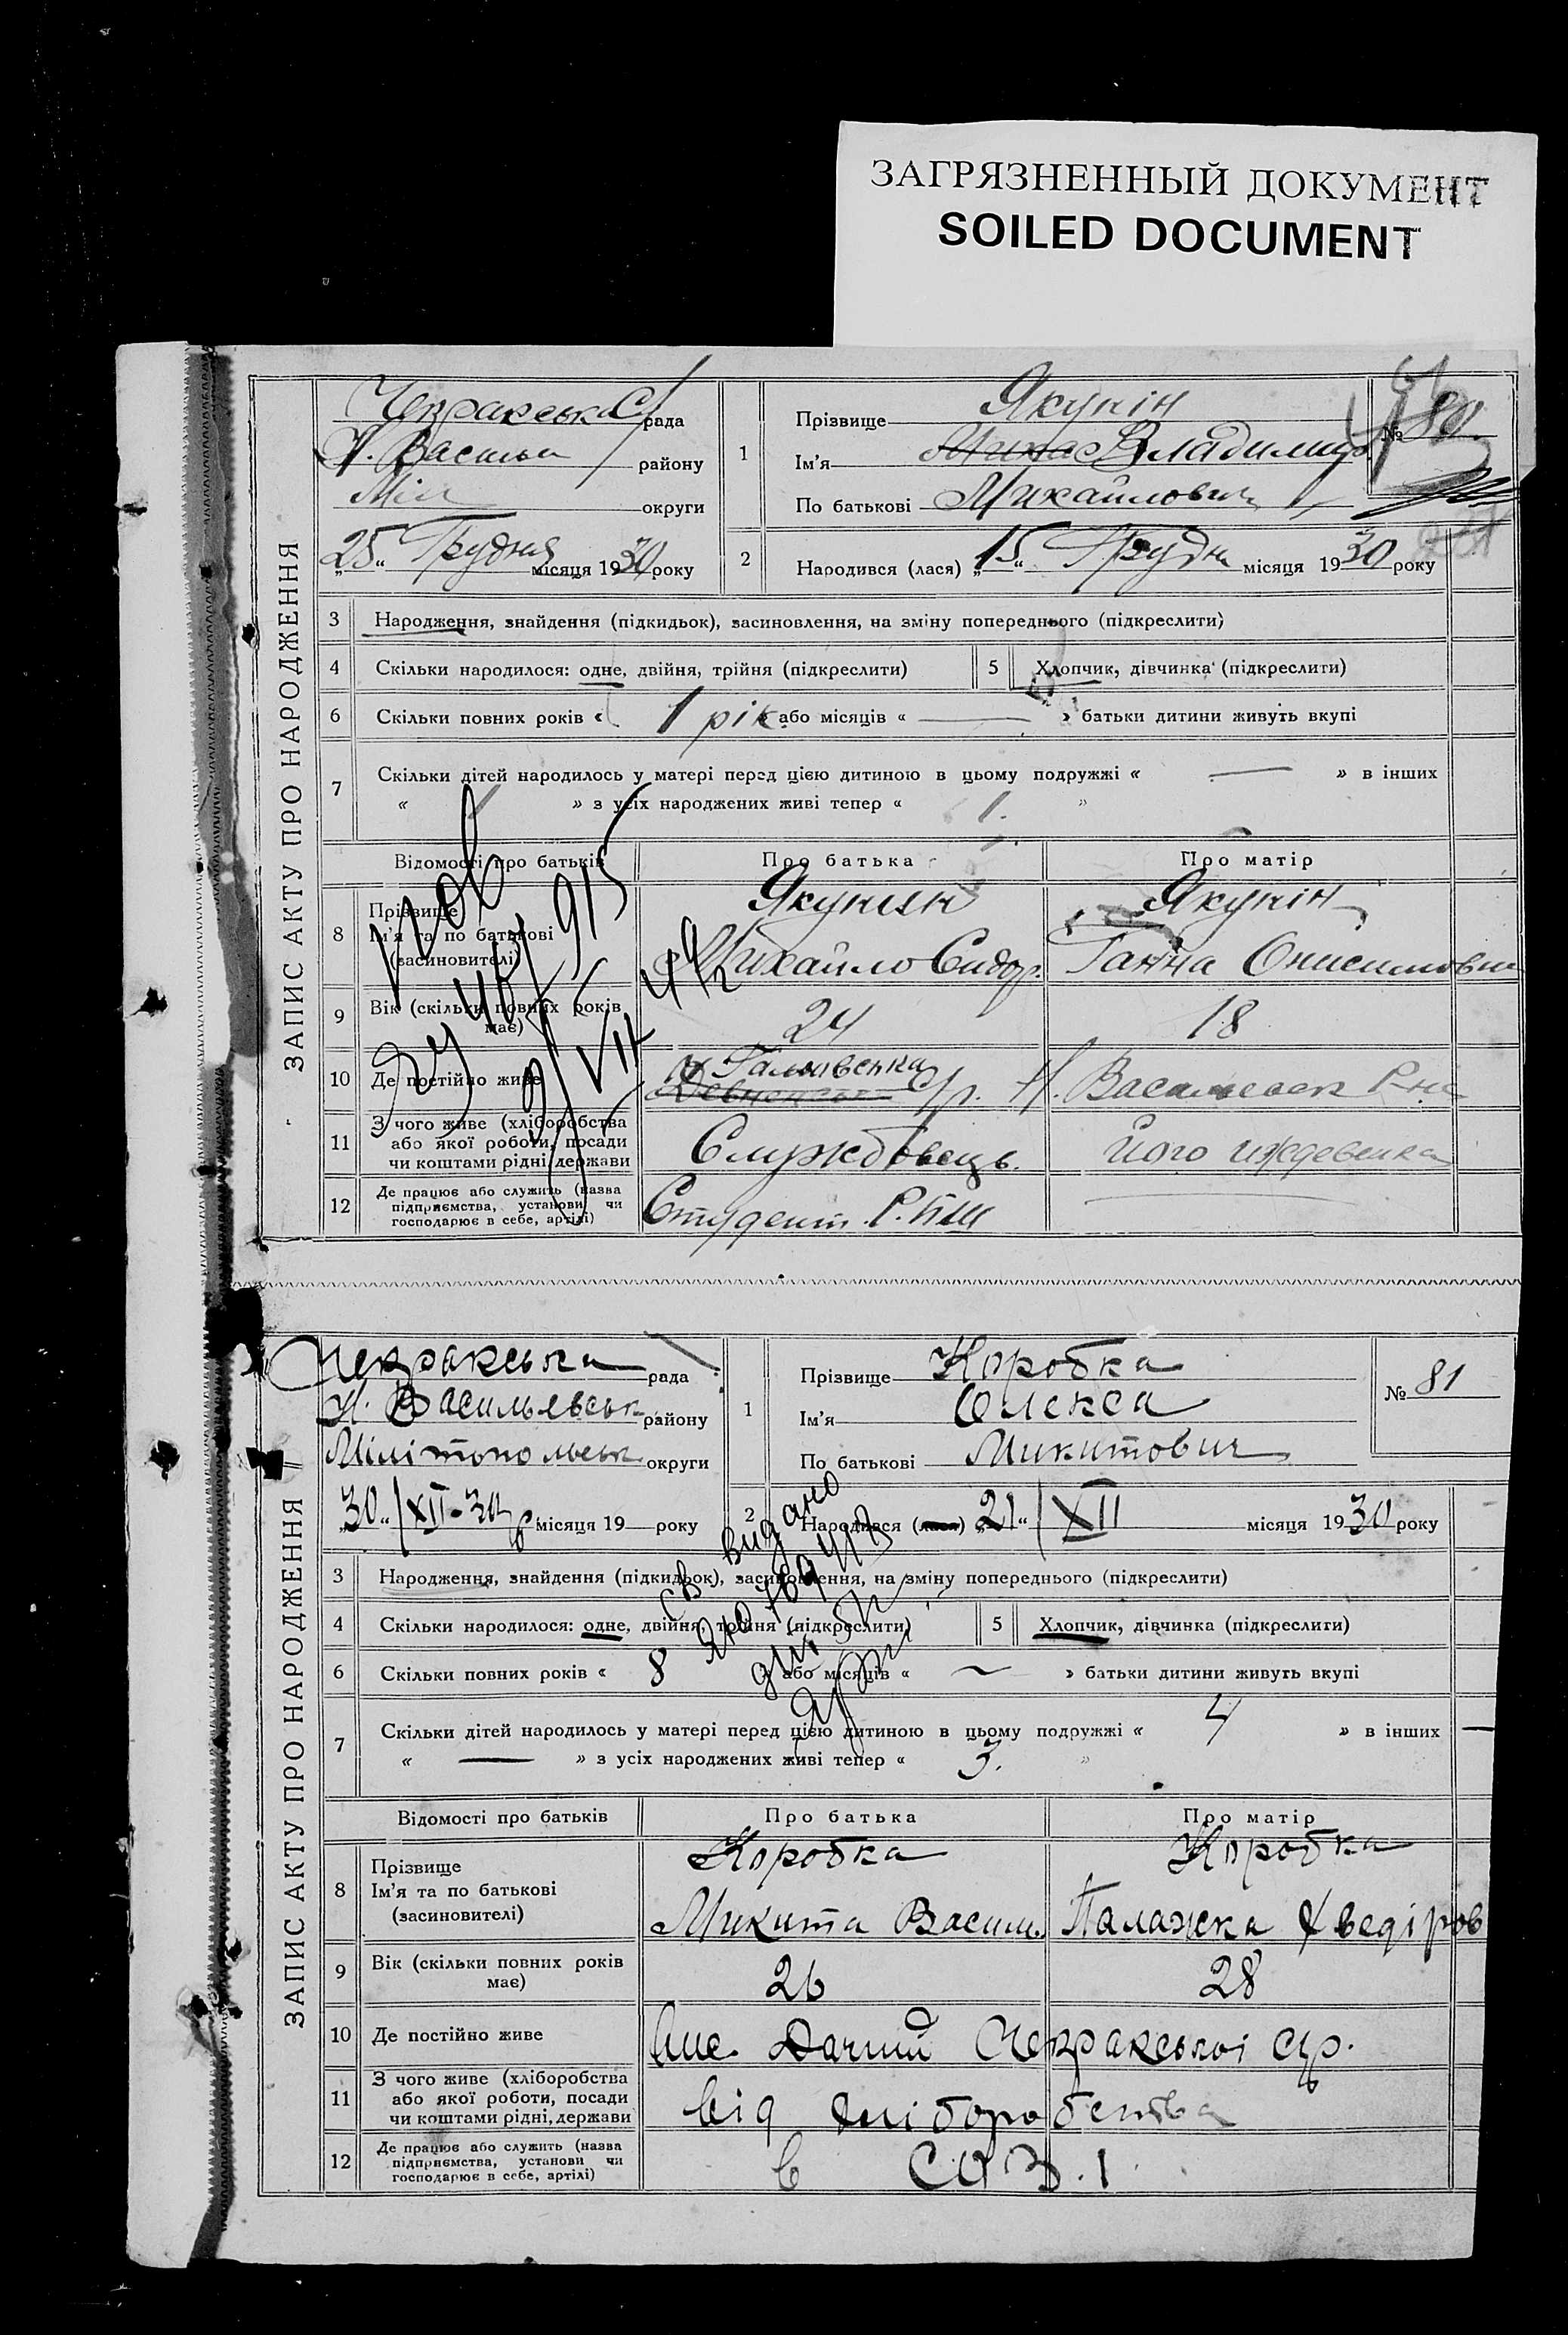 ЗАГРЯЗНЕННЫЙ ДОКУМЕНТ
SOILED DOCUMENT
ЗАПИС АКТУ ПРО НАРОДЖЕННЯ
рада
Н. Васильв району
Міл округи
„25“ Грудня місяця 1930 року
1
Прізвище Якунін
Ім'я Владимир
По батькові Михайлович
№ 80
2
Народився (лася) „15“ Грудн місяця 1930 року
3 Народження, знайдення (підкидьок), засиновлення, на зміну попереднього (підкреслити)
4 Скільки народилося: одне, двійня, трійня (підкреслити)
5 Хлопчик, дівчинка (підкреслити)
6 Скільки повних років « 1 рік » або місяців « — » батьки дитини живуть вкупі
7 Скільки дітей народилось у матері перед цією дитиною в цьому подружжі « — » в інших
« » з усіх народжених живі тепер « 1. »
Відомості про батьків Про батька Про матір
8 Прізвище Якунин Якунін
Ім'я та по батькові
(засиновителі) Михайло Сидор. Ганна Онисимовна
9 Вік (скільки повних років має) 24 18
10 Де постійно живе Ср. Н. Васильевск Р-на
11 З чого живе (хліборобства
або якої роботи, посади
чи коштами рідні, держави Службовець. його иждевенка
12 Де працює або служить (назва
підприємства, установи чи
господарює в себе, артілі) Студент
ЗАПИС АКТУ ПРО НАРОДЖЕННЯ
Чекракська рада
Н. Васильевськ району
Мілітопольськ округи
„30“/XII-30 р місяця 19 року
1
Прізвище Коробка
Ім'я Олекса
По батькові Микитович
№ 81
2
Народився (лася) „21“/XII місяця 1930 року
св видано
3 Народження, знайдення (підкидьок), засиновлення, на зміну попереднього (підкреслити)
4 Скільки народилося: одне, двійня, трійня (підкреслити)
5 Хлопчик, дівчинка (підкреслити)
6 Скільки повних років « 8 » або місяців « — » батьки дитини живуть вкупі
7 Скільки дітей народилось у матері перед цією дитиною в цьому подружжі « 4 » в інших —
« — » з усіх народжених живі тепер « 3. »
Відомості про батьків Про батька Про матір
8 Прізвище Коробка Коробка
Ім'я та по батькові
(засиновителі) Микита Васил. Палажка Хведіров
9 Вік (скільки повних років має) 26 28
10 Де постійно живе Чекракської с/р.
11 З чого живе (хліборобства
або якої роботи, посади
чи коштами рідні, держави від хліборобства
12 Де працює або служить (назва
підприємства, установи чи
господарює в себе, артілі) в СОЗ. 1